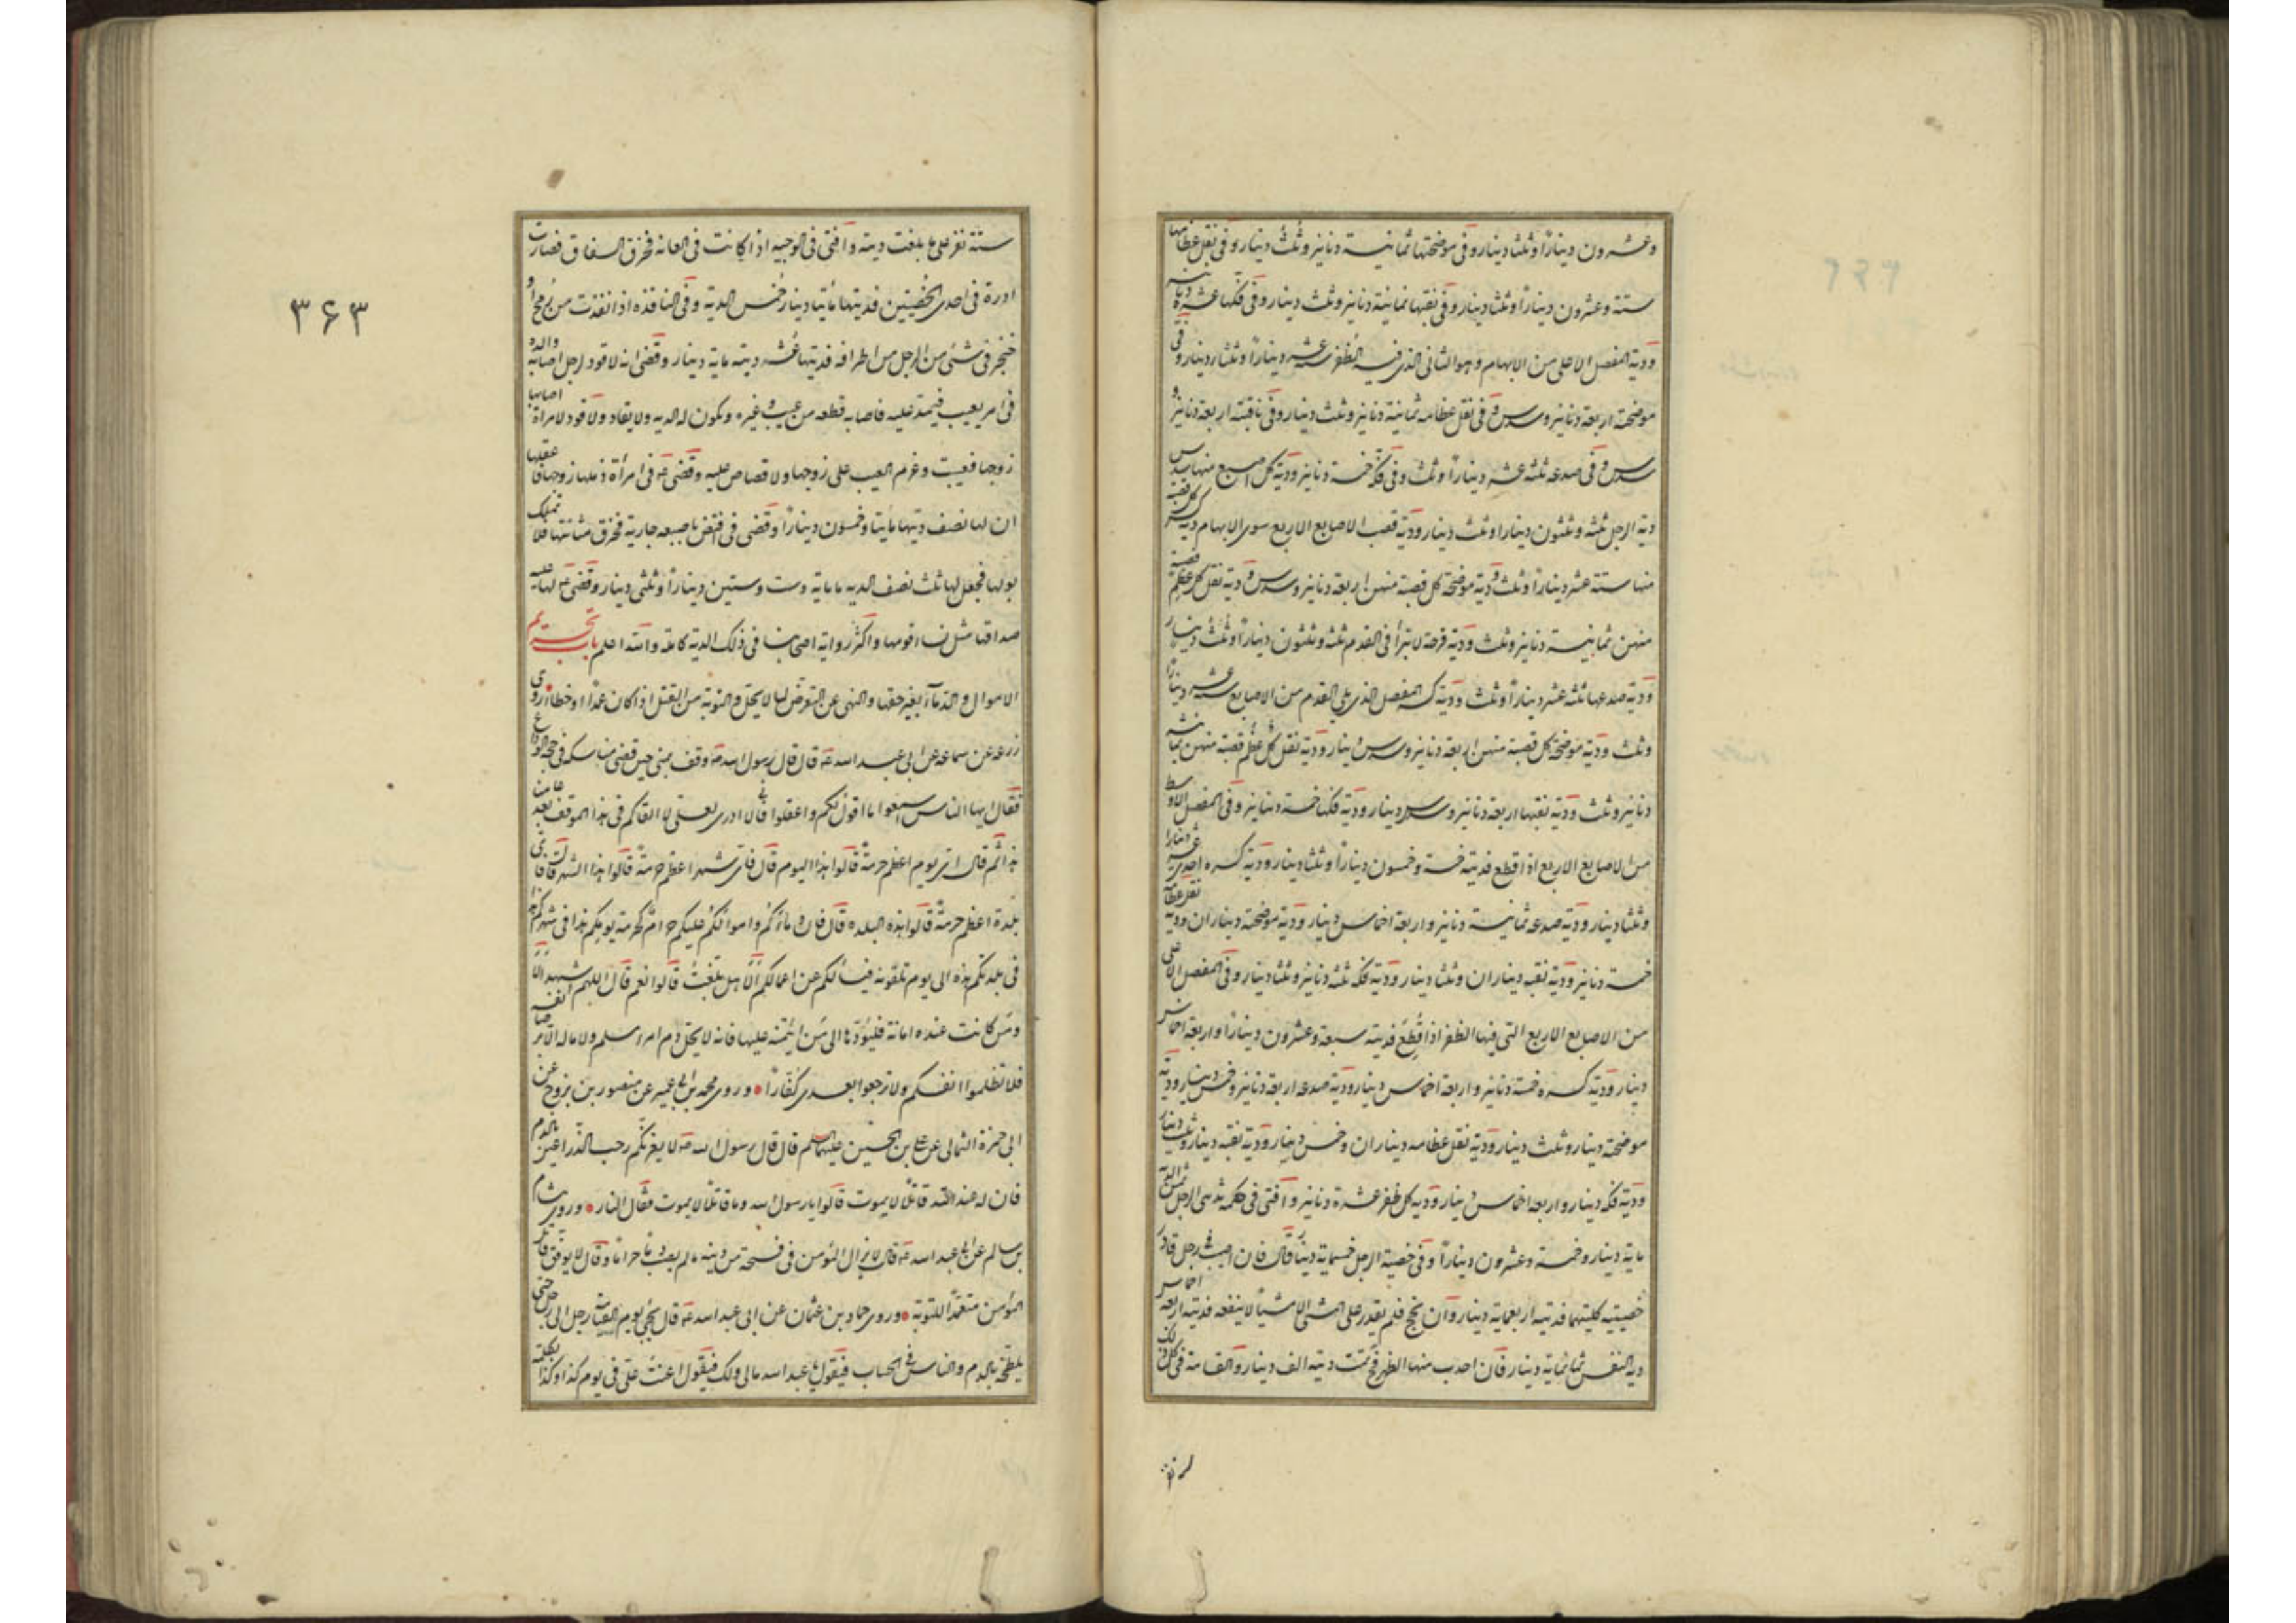 وعشرون دينارًا وثلثا دينار وفى موضحتها ثمانية دنانير وثلث دينار وفى نقل عظامها
ستة وعشرون دينارًا وثلثا دينار وفى نقبها ثمانية دنانير وثلث دينار وفى فكها عشرة دنانير
ودية المفصل الاعلى من الابهام وهو الثانى الذى فيه الظفر ستة عشر دينارًا وثلثا دينار وفى
موضحته اربعة دنانير وسدس وفى نقل عظامه ثمانية دنانير وثلث دينار وفى ناقبته اربعة دنانير و
سدس وفى صدعه ثلثة عشر دينارًا وثلث وفى فكه خمسة دنانير ودية كل اصبع منها سدس
دية الرجل ثلثة وثلثون دينارا وثلث دينار ودية قصب الاصابع الاربع سوى الابهام دية كسر كل قصبة
منها ستة عشر دينارًا وثلث ودية موضحة كل قصبة منهن اربعة دنانير وسدس ودية نقل كل عظم قصبة
منهن ثمانية دنانير وثلث ودية قرحة لا تبرأ فى القدم ثلثة وثلثون دينارًا وثلث دينار
ودية صدعها ثلثة عشر دينارًا وثلث ودية كسر المفصل الذى يلى القدم من الاصابع ستة عشر دينارًا
وثلث ودية موضحة كل قصبة منهن اربعة دنانير وسدس دينار ودية نقل كل عظم قصبة منهن ثمانية
دنانير وثلث ودية نقبها اربعة دنانير وسدس دينار ودية فكها خمسة دنانير وفى المفصل الاوسط
من الاصابع الاربع اذا قطع فديته خمسة وخمسون دينارًا وثلثا دينار ودية كسره احدى عشر دينارا
وثلثا دينار ودية صدعه ثمانية دنانير واربعة اخماس دينار ودية موضحته ديناران ودية نقل عظامه
خمسة دنانير ودية نقبه ديناران وثلثا دينار ودية فكه ثلثة دنانير وثلثا دينار وفى المفصل الاعلى
من الاصابع الاربع التى فيها الظفر اذا قطع فديته سبعة وعشرون دينارًا واربعة اخماس
دينار ودية كسره خمسة دنانير واربعة اخماس دينار ودية صدعه اربعة دنانير وخمس دينار ودية
موضحته دينار وثلث دينار ودية نقل عظامه ديناران وخمس دينار ودية نقبه دينار وثلث دينار
ودية فكه دينار واربعة اخماس دينار ودية كل ظفر عشرة دنانير وافتى فى حلمة ثدى الرجل ثمن الدية
ماية دينار وخمسة وعشرون دينارًا وفى خصية الرجل خمسماية دينار قال فان اصيب رجل فادر
خصيتيه كلتيهما فديته اربعماية دينار وان فحج فلم يقدر على المشى الا مشيا لا ينفعه فديته اربعة اخماس
دية النفس ثمانماية دينار فان احدب منها الظهر فح تمت ديته الف دينار والقسامة فى كل ذلك
ستة نفر على ما بلغت ديته وافتى فى الوجيه اذا كانت فى العانه فخرق السفاق فصارت
ادرة فى احدى الخصيتين فديتها مأتا دينار خمس الدية وفى النافذه اذا نفذت من رمح او
خنجر فى شئ من الرجل من اطرافه فديتها عشر ديته ماية دينار وقضى انه لا قود لرجل اصابه والده
فى امر يعيب فيه عليه فاصابه قطعه من عيب وغيره وتكون له الديه ولا يقاد ولا قود لامراة اصابها
زوجها فعيبت وغرم العيب على زوجها ولا قصاص عليه وقضى ع فى امرأة ركلها زوجها فاعقلها
ان لها نصف ديتها مأيتا وخمسون دينارًا وقضى فى رجل افتض باصبعه جارية فخرق مثانتها فلا تملك
بولها فجعل لها ثلث نصف الديه ماية وست وستين دينارًا وثلثى دينار وقضى ع لها عليه
صداقها مثل نساء قومها واكثر رواية اصحابنا فى ذلك الدية كاملة والله اعلم باب تحريم
الاموال والدماء بغير حقها والنهى عن التعرض لما لا يحل والتوبة من القتل اذا كان عمدًا او خطأ روى
زرعه عن سماعه عن ابى عبد الله ع قال قال رسول الله ص وقف بمنى حين قضى مناسكه فى حجة الوداع
فقال ايها الناس اسمعوا ما اقول لكم واعقلوا فانى لا ادرى لعلى لا القاكم فى هذا الموقف بعد عامنا
هذا ثم قال اى يوم اعظم حرمة قالوا هذا اليوم قال فاى شهر اعظم حرمة قالوا هذا الشهر قال فاى
بلدة اعظم حرمة قالوا هذه البلده قال فان دماءكم واموالكم عليكم حرام كحرمة يومكم هذا فى شهركم هذا
فى بلدتكم هذه الى يوم تلقونه فيسألكم عن اعمالكم الا هل بلغت قالوا نعم قال اللهم اشهد الا
ومن كانت عنده امانة فليؤدها الى من ائتمنه عليها فانه لا يحل دم امرء مسلم ولا ماله الا بر
فلا تظلموا انفسكم ولا ترجعوا بعدى كفارًا وروى محمد بن ابى عمير عن منصور بن بزرج عن
ابى حمزة الثمالى عن على بن الحسين عليهما السلم قال قال رسول الله ص لا يغرنكم رحب الذراعين بالدم
فان له عند الله قاتلا لا يموت قالوا يا رسول الله وما قاتلا لا يموت فقال النار وروى هشام
بن سالم عن ابى عبد الله ع قال لا يزال المؤمن فى فسحة من دينه ما لم يصب دما حراما وقال لا يوفق قاتل
المؤمن متعمدًا للتوبة وروى حماد بن عثمان عن ابى عبد الله ع قال يجئ يوم القيامة رجل الى رجل حتى
يلطخه بالدم والناس فى الحساب فيقول يا عبد الله مالى ولك فيقول اعنت على فى يوم كذا وكذا بكلمة
۳۶۳